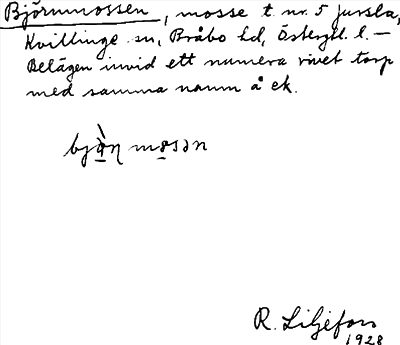 Björnmossen, mosse t. nr. 5 Jursla,
Kvillinge sn, Bråbo hd, Östergtl. l. —
Belägen invid ett numera rivet torp
med samma namn å ek.
bjö̀ṇ mosən
R. Liljefors
1928